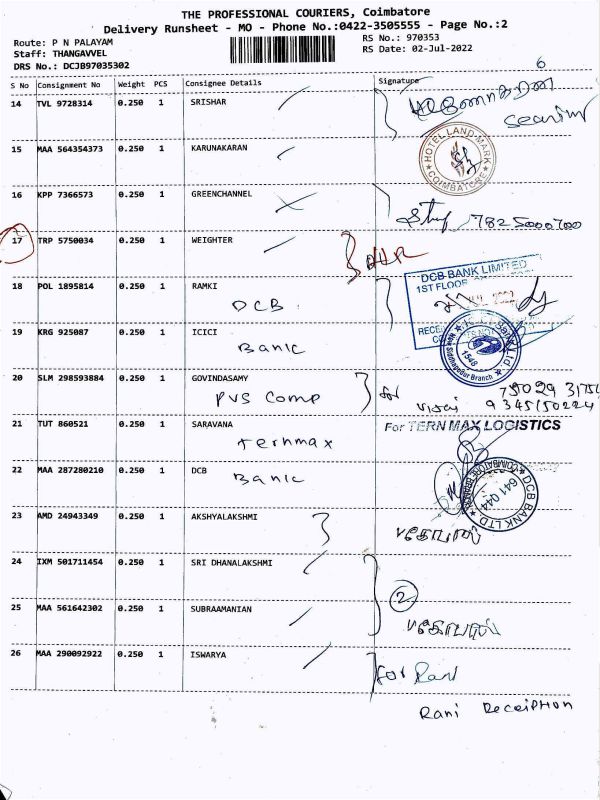 THE PROFESSIONAL COURIERS, Coimbatore
Delivery Runsheet - MO - Phone No.:0422-3505555 - Page No.:2
Route: P N PALAYAM
RS No.: 970353
Staff: THANGAVVEL
RS Date: 02-Jul-2022
DRS No.: DCJB97035302
6
S No Consignment No Weight PCS Consignee Details Signature
14 TVL 9728314 0.250 1 SRISHAR
15 MAA 564354373 0.250 1 KARUNAKARAN
HOTEL LAND MARK
COIMBATORE
16 KPP 7366573 0.250 1 GREENCHANNEL
7825000700
17 TRP 5750034 0.250 1 WEIGHTER
DCB BANK LIMITED
1ST FLOOR
18 POL 1895814 0.250 1 RAMKI
DCB
19 KRG 925087 0.250 1 ICICI
Bank
1548
20 SLM 298593884 0.250 1 GOVINDASAMY
PVS Comp
21 TUT 860521 0.250 1 SARAVANA
For TERN MAX LOGISTICS
ternmax
22 MAA 287280210 0.250 1 DCB
Bank
DCB BANK LTD.
COIMBATORE BRANCH
641 044
23 AMD 24943349 0.250 1 AKSHYALAKSHMI
24 IXM 501711454 0.250 1 SRI DHANALAKSHMI
2
25 MAA 561642302 0.250 1 SUBRAAMANIAN
26 MAA 290092922 0.250 1 ISWARYA
for Rani
Rani Reception